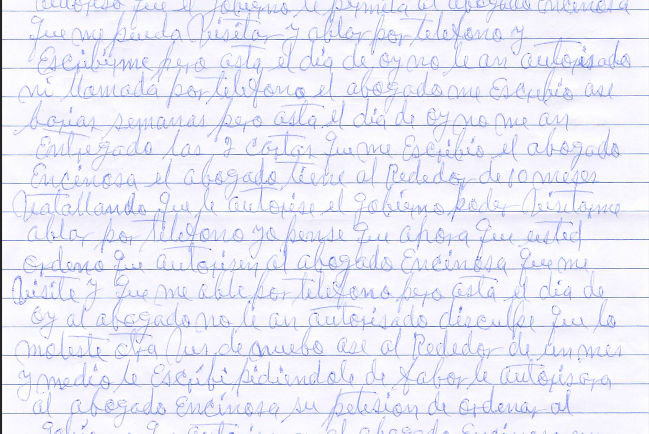 autoriso que el gobierno le permita al abogado Encinosa
Que me pueda Visitar y ablar por telefono y
Escribirme pero asta el dia de oy no le an autorisado
ni llamada por telefono el abogado me Escribio ase
barias semanas pero asta el dia de oy no me an
Entregado las 2 cartas que me Escribio el abogado
Encinosa el abogado tiene al Rededor de 10 meses
Vatallando que le autorise el gobierno poder Visitarme
ablar por telefono yo pense que ahora que usted
ordeno que autorisen al abogado Encinosa que me
Visite y que me able por telefono pero asta el dia de
oy al abogado no le an autorisado disculpe que lo
moleste otra Ves de nuebo ase al Rededor de un mes
y medio le Escribi pidiendole de fabor le autorisara
al abogado Encinosa su petision de ordenar al